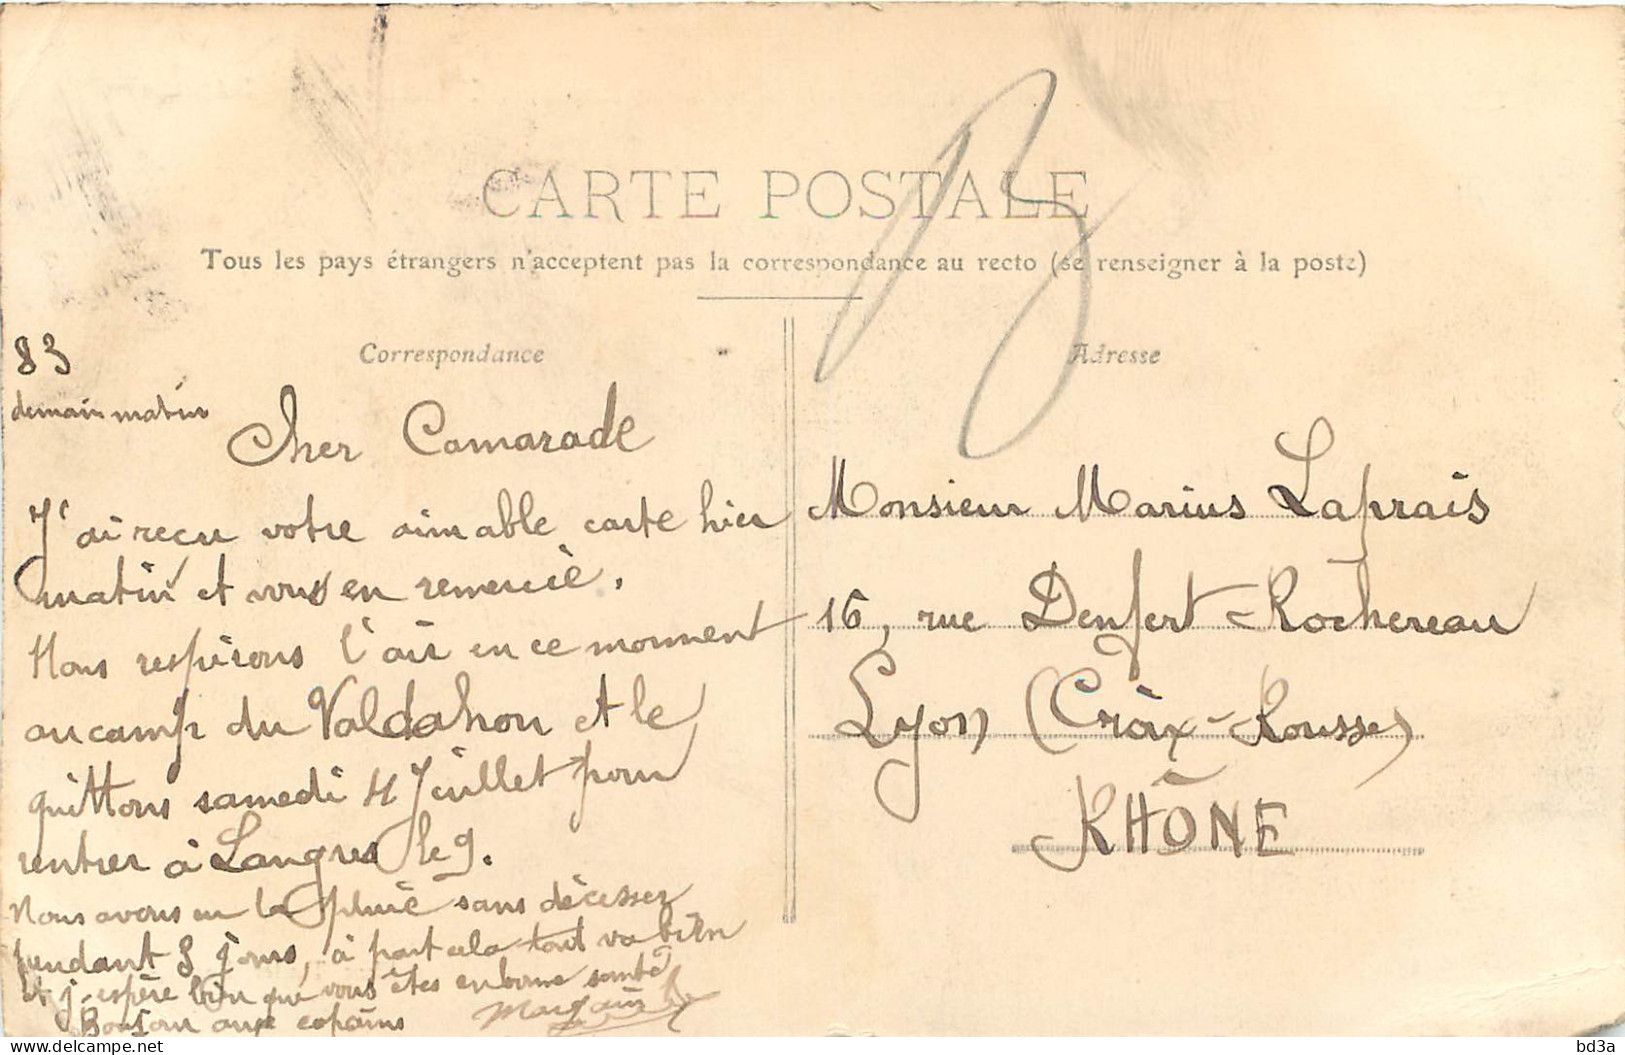 CARTE POSTALE
Tous les pays étrangers n'acceptent pas la correspondance au recto (se renseigner à la poste)
Correspondance
83
demain matin
Cher Camarade
J'ai reçu votre aimable carte hier
matin et vous en remercie.
Nous respirons l'air en ce momment
au camp du Valdahon et le
quittons samedi 4 Juillet pour
rentrer à Langres le 9.
Nous avons eu la pluie sans décesser
pendant 8 jours, à part cela tout va bien
et j'espère bien que vous êtes en bonne santé
Bonjour aux copains
Adresse
Monsieur Marius Laprais
16, rue Denfert-Rochereau
Lyon (Croix-Rousse)
RHÔNE
bd3a